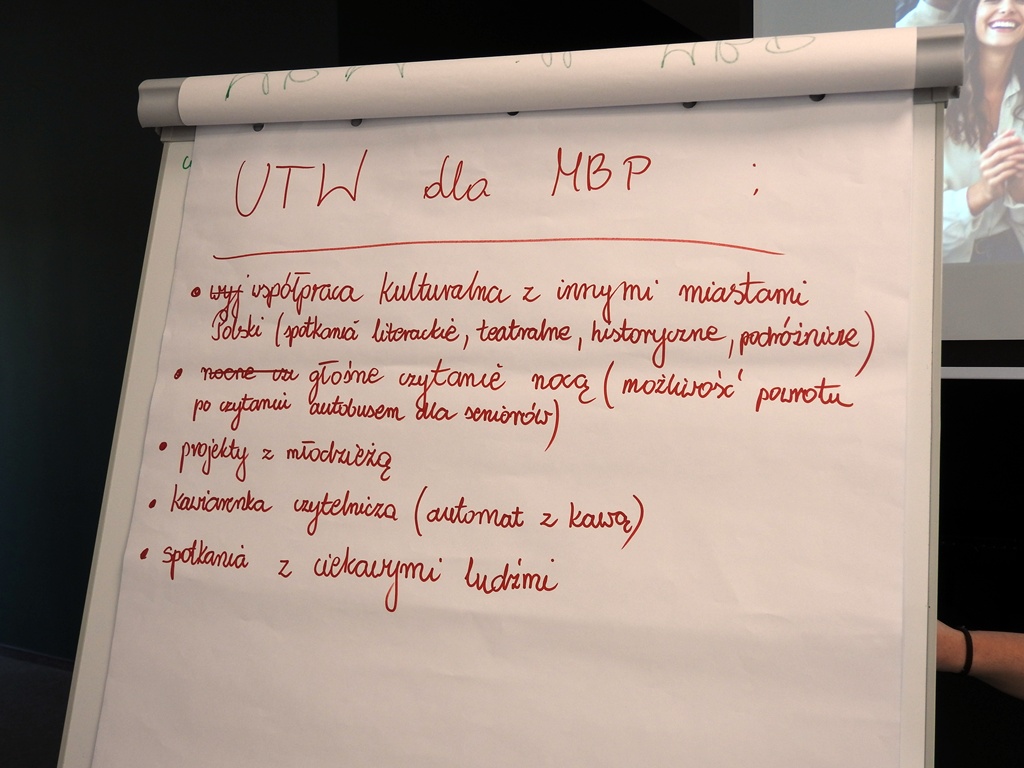 UTW dla MBP :
• wyj współpraca kulturalna z innymi miastami
Polski (spotkania literackie, teatralne, historyczne, podróżnicze)
• nocne cz głośne czytanie nocą (możliwość powrotu
po czytaniu autobusem dla seniorów)
• projekty z młodzieżą
• kawiarenka czytelnicza (automat z kawą)
• spotkania z ciekawymi ludźmi